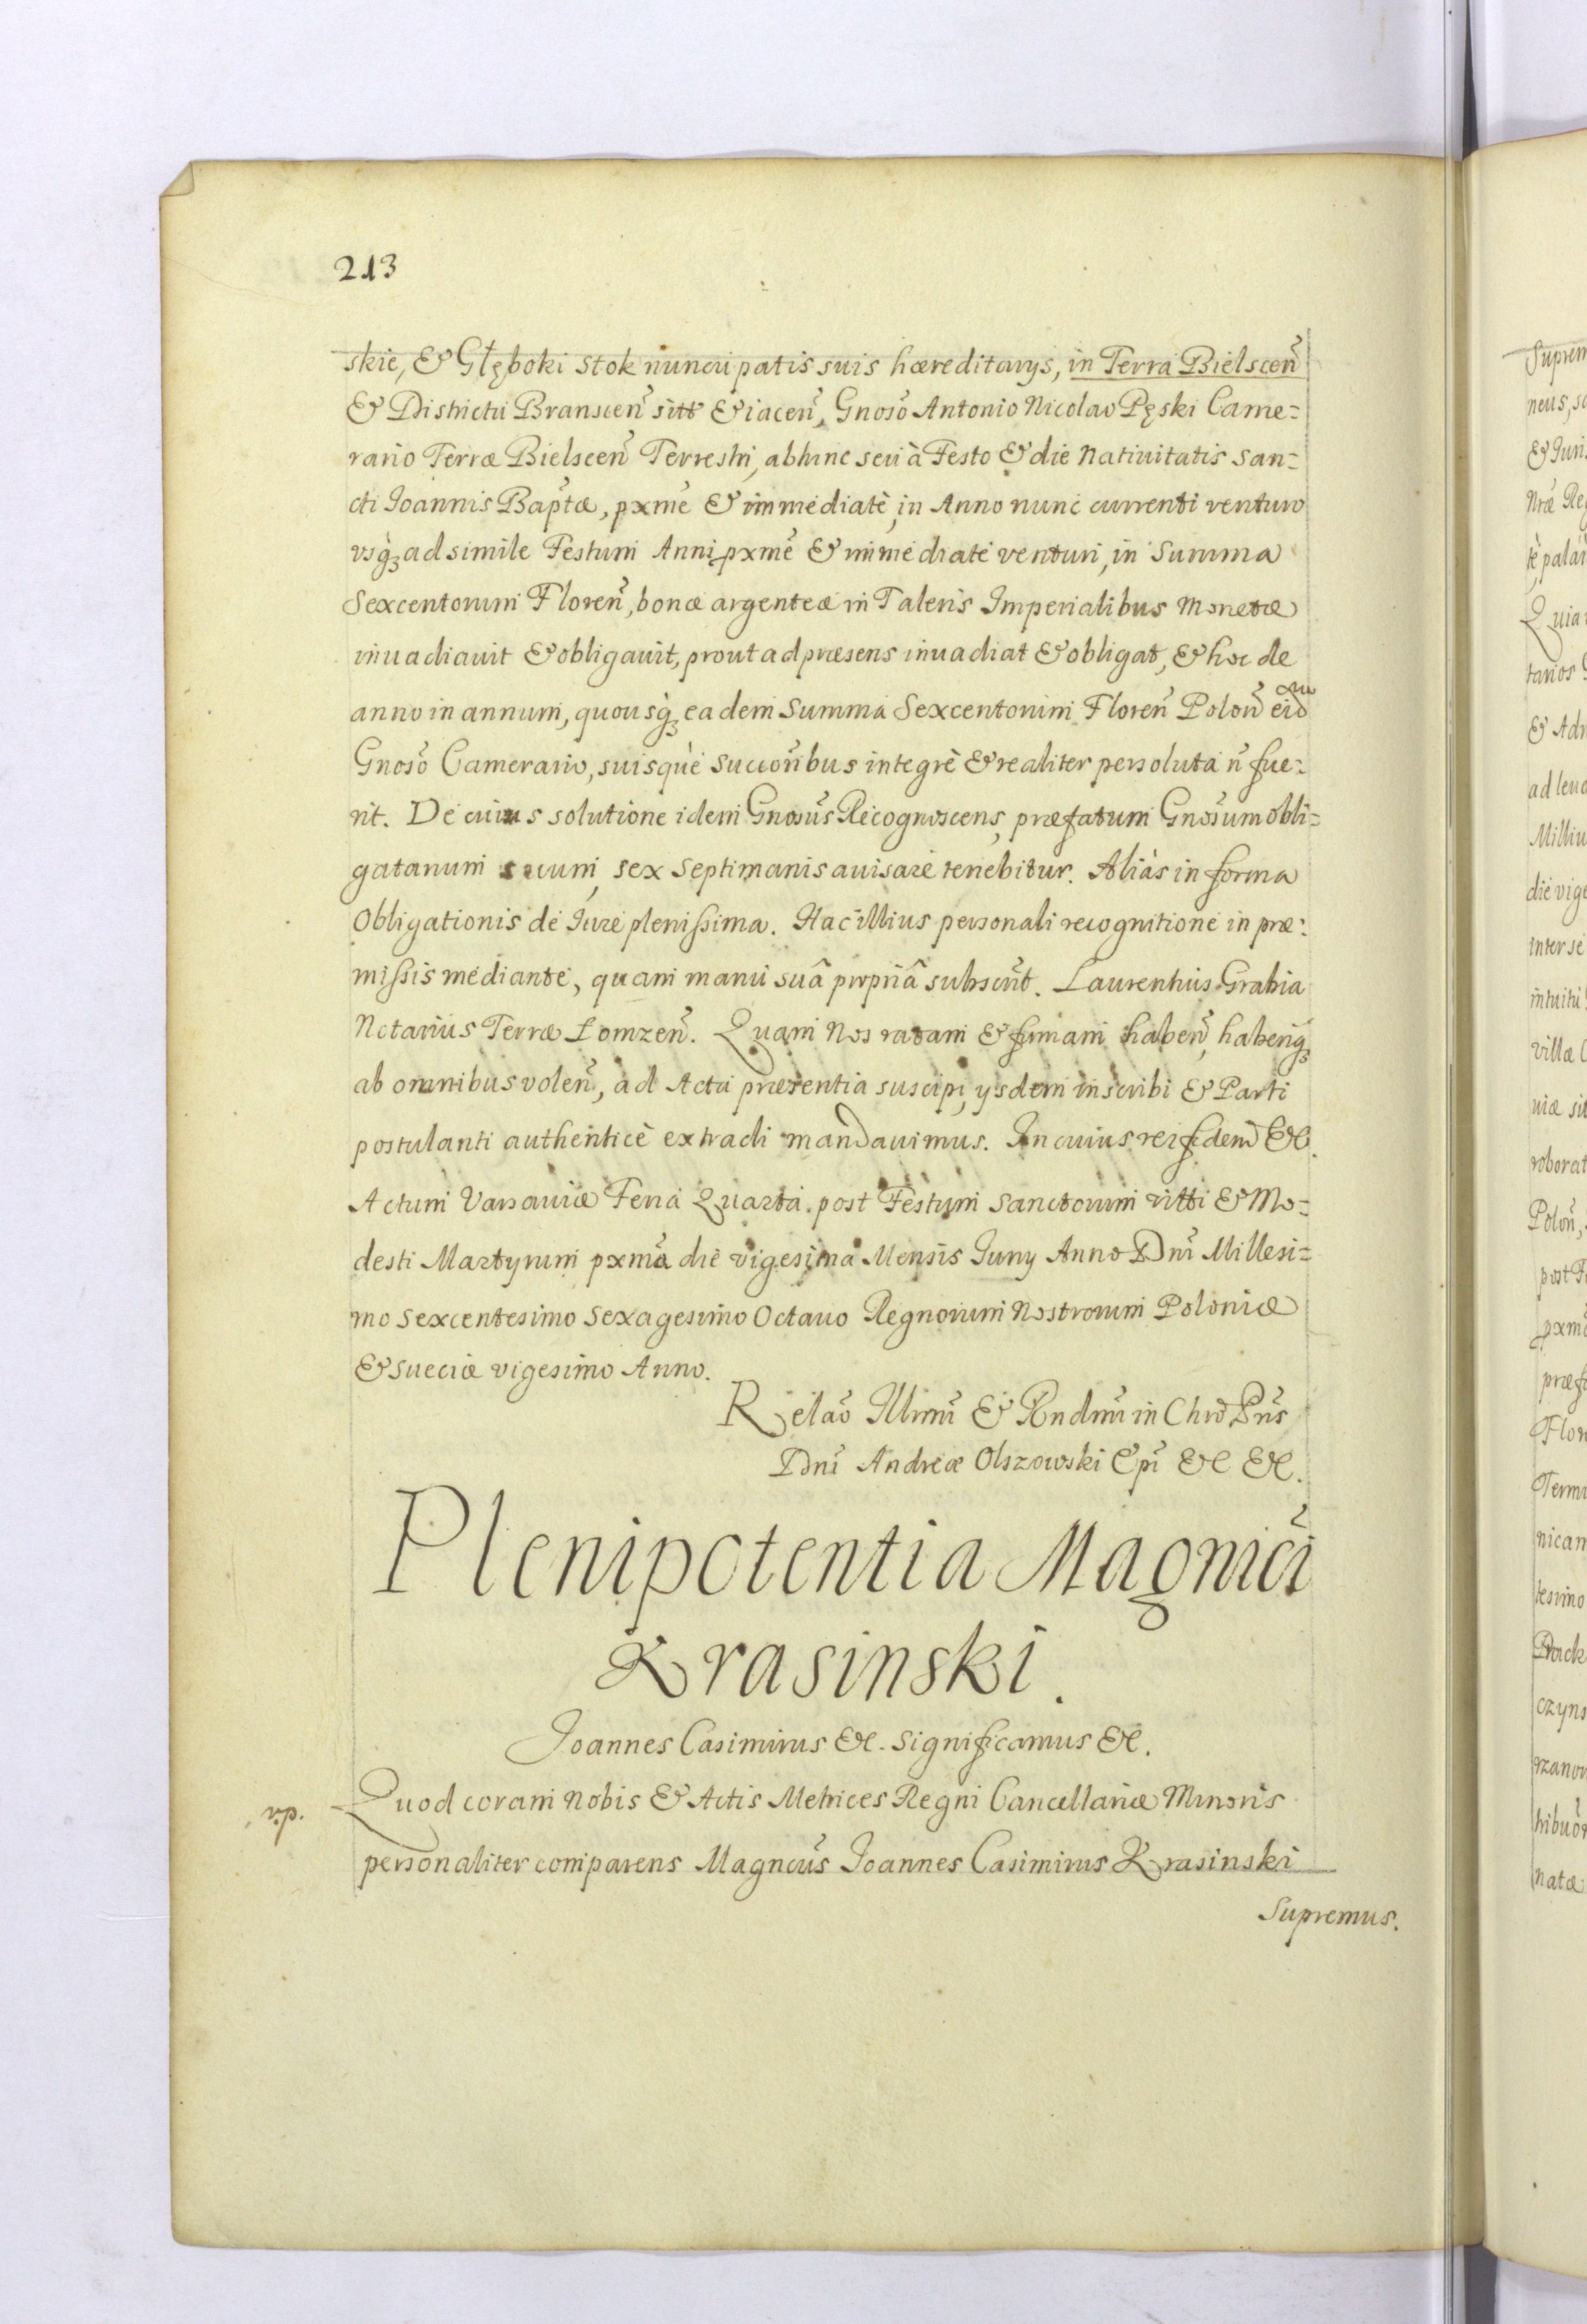 213
skie, & Głęboki stok nuncupatis suis hæreditarijs, in Terra Bielscen̄
& Districtu Branscen̄ sitt & iacen̄, Gnoso̅ Antonio Nicolao Pęski Came=
rario Terræ Bielscen̄ Terrestri, abhinc seu à Festo & die Natiuitatis San=
cti Ioannis Bap̄tæ, pxme̅ & immediatè, in Anno nunc currenti venturo
vsq̀ꝫ ad simile Festum Anni pxme̅ & immediatè venturi, in Summa
Sexcentorum Floren̄, bonæ argenteæ in Taleris Imperialibus Monetæ
inuadiauit & obligauit, prout ad præsens inuadiat & obligat, & hoc de
anno in annum, quousq̀ꝫ eadem Summa Sexcentorum Floren̄ Polon̄ eid̅
Gnoso̅ Camerario, suisquè Succoribus integrè & realiter persoluta n̄ fue=
rit. De cuius solutione idem Gnosus̅ Recognoscens, præfatum Gnosum̅ obli=
gatarium suum, sex septimanis auisare tenebitur. Aliàs in forma
Obligationis de Iure plenissima. Hac illius personali recognitione in præ=
missis mediante, quam manu suâ propriâ subscrit̅. Laurentius Grabia
Notarius Terræ Łomzen̄. Quam Nos ratam & firmam haben̄, haberiq̀ꝫ
ab omnibus volen̄, ad Acta præsentia suscipi, ijsdem inscribi & Parti
postulanti authenticè extradi mandauimus. In cuius rei fidem̅ &c.
Actum Varsauiæ Feria Quarta post Festum Sanctorum Vitti & Mo=
desti Martyrum pxma̅ die vigesima Mensis Iunij Anno Dn̅i Millesi=
mo Sexcentesimo Sexagesimo Octauo Regnorum Nostrorum Poloniæ
& Sueciæ vigesimo Anno.
Relao̅ Illmi̅ & Rndmi̅ in Chro̅ Pris̅
Dn̅i Andreæ Olszowski Epi̅ &c &c.
Plenipotentia Magnici̅
Krasinski.
Joannes Casimirus &c. Significamus &c.
v.p.
Quod coram Nobis & Actis Metrices Regni Cancellariæ Minoris
personaliter comparens Magncus̅ Joannes Casimirus Krasinski
Supremus.